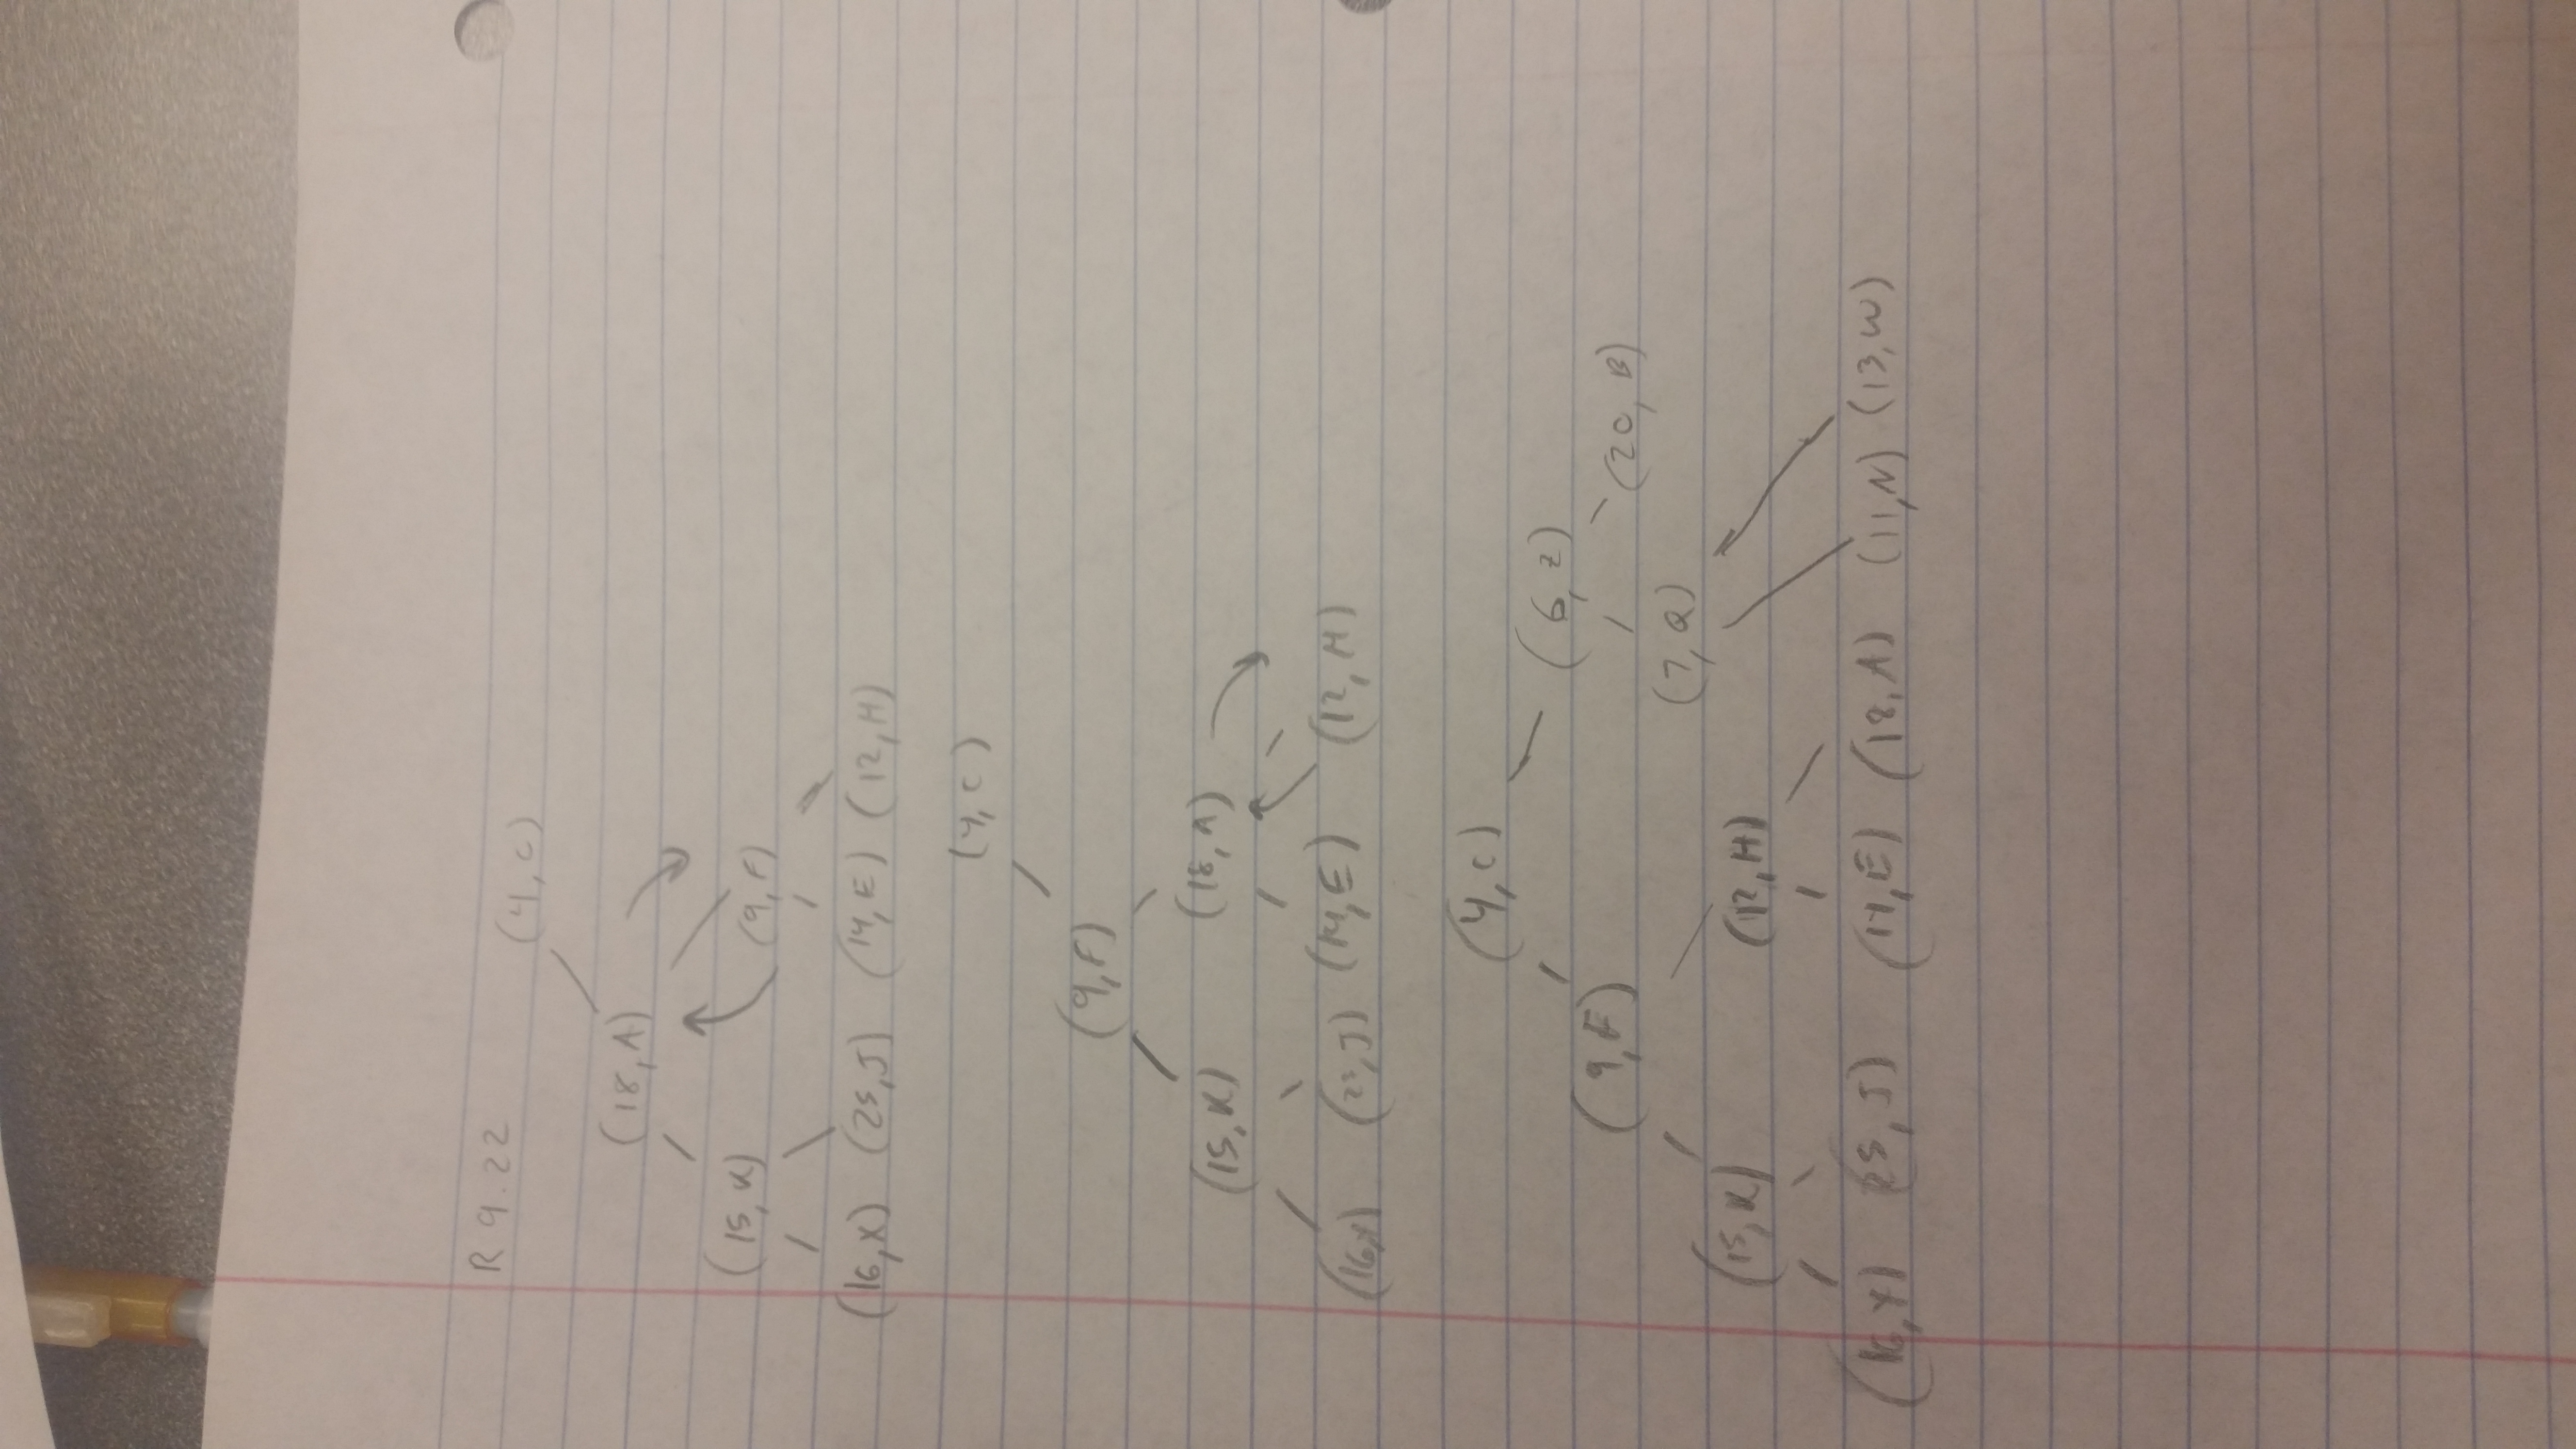 R 9.22
(4, C)
(18, A)
(15, K) (9, F)
(16, X) (25, J) (14, E) (12, H)
(4, C)
(9, F)
(15, K) (18, A)
(16, X) (14, E) (12, H)
(4, C)
(6, Z)
(9, F) (20, B)
(7, Q)
(15, K) (12, H)
(16, X) (25, J) (14, E) (18, A) (11, N) (13, W)